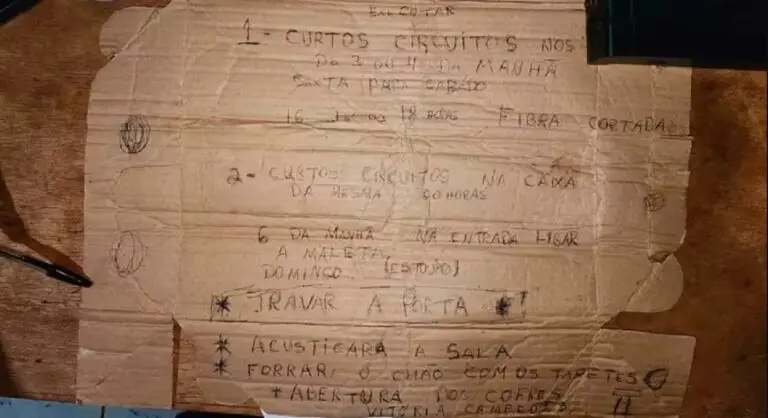 EXECUTAR
1 - CURTOS CIRCUITOS NOS
DA 3 OU 4 DA MANHÃ
SEXTA PARA SABADO
16 18 FIBRA CORTADA
2 - CURTOS CIRCUITOS NA CAIXA
DA MESMA HORAS
6 DA MANHÃ NA ENTRADA LIGAR
A MALETA
DOMINGO (ESTOJO)
* TRAVAR A PORTA *
* ACUSTICARA A SALA
* FORRAR O CHÃO COM OS TAPETES
* ABERTURA DOS COFRES
VITORIA